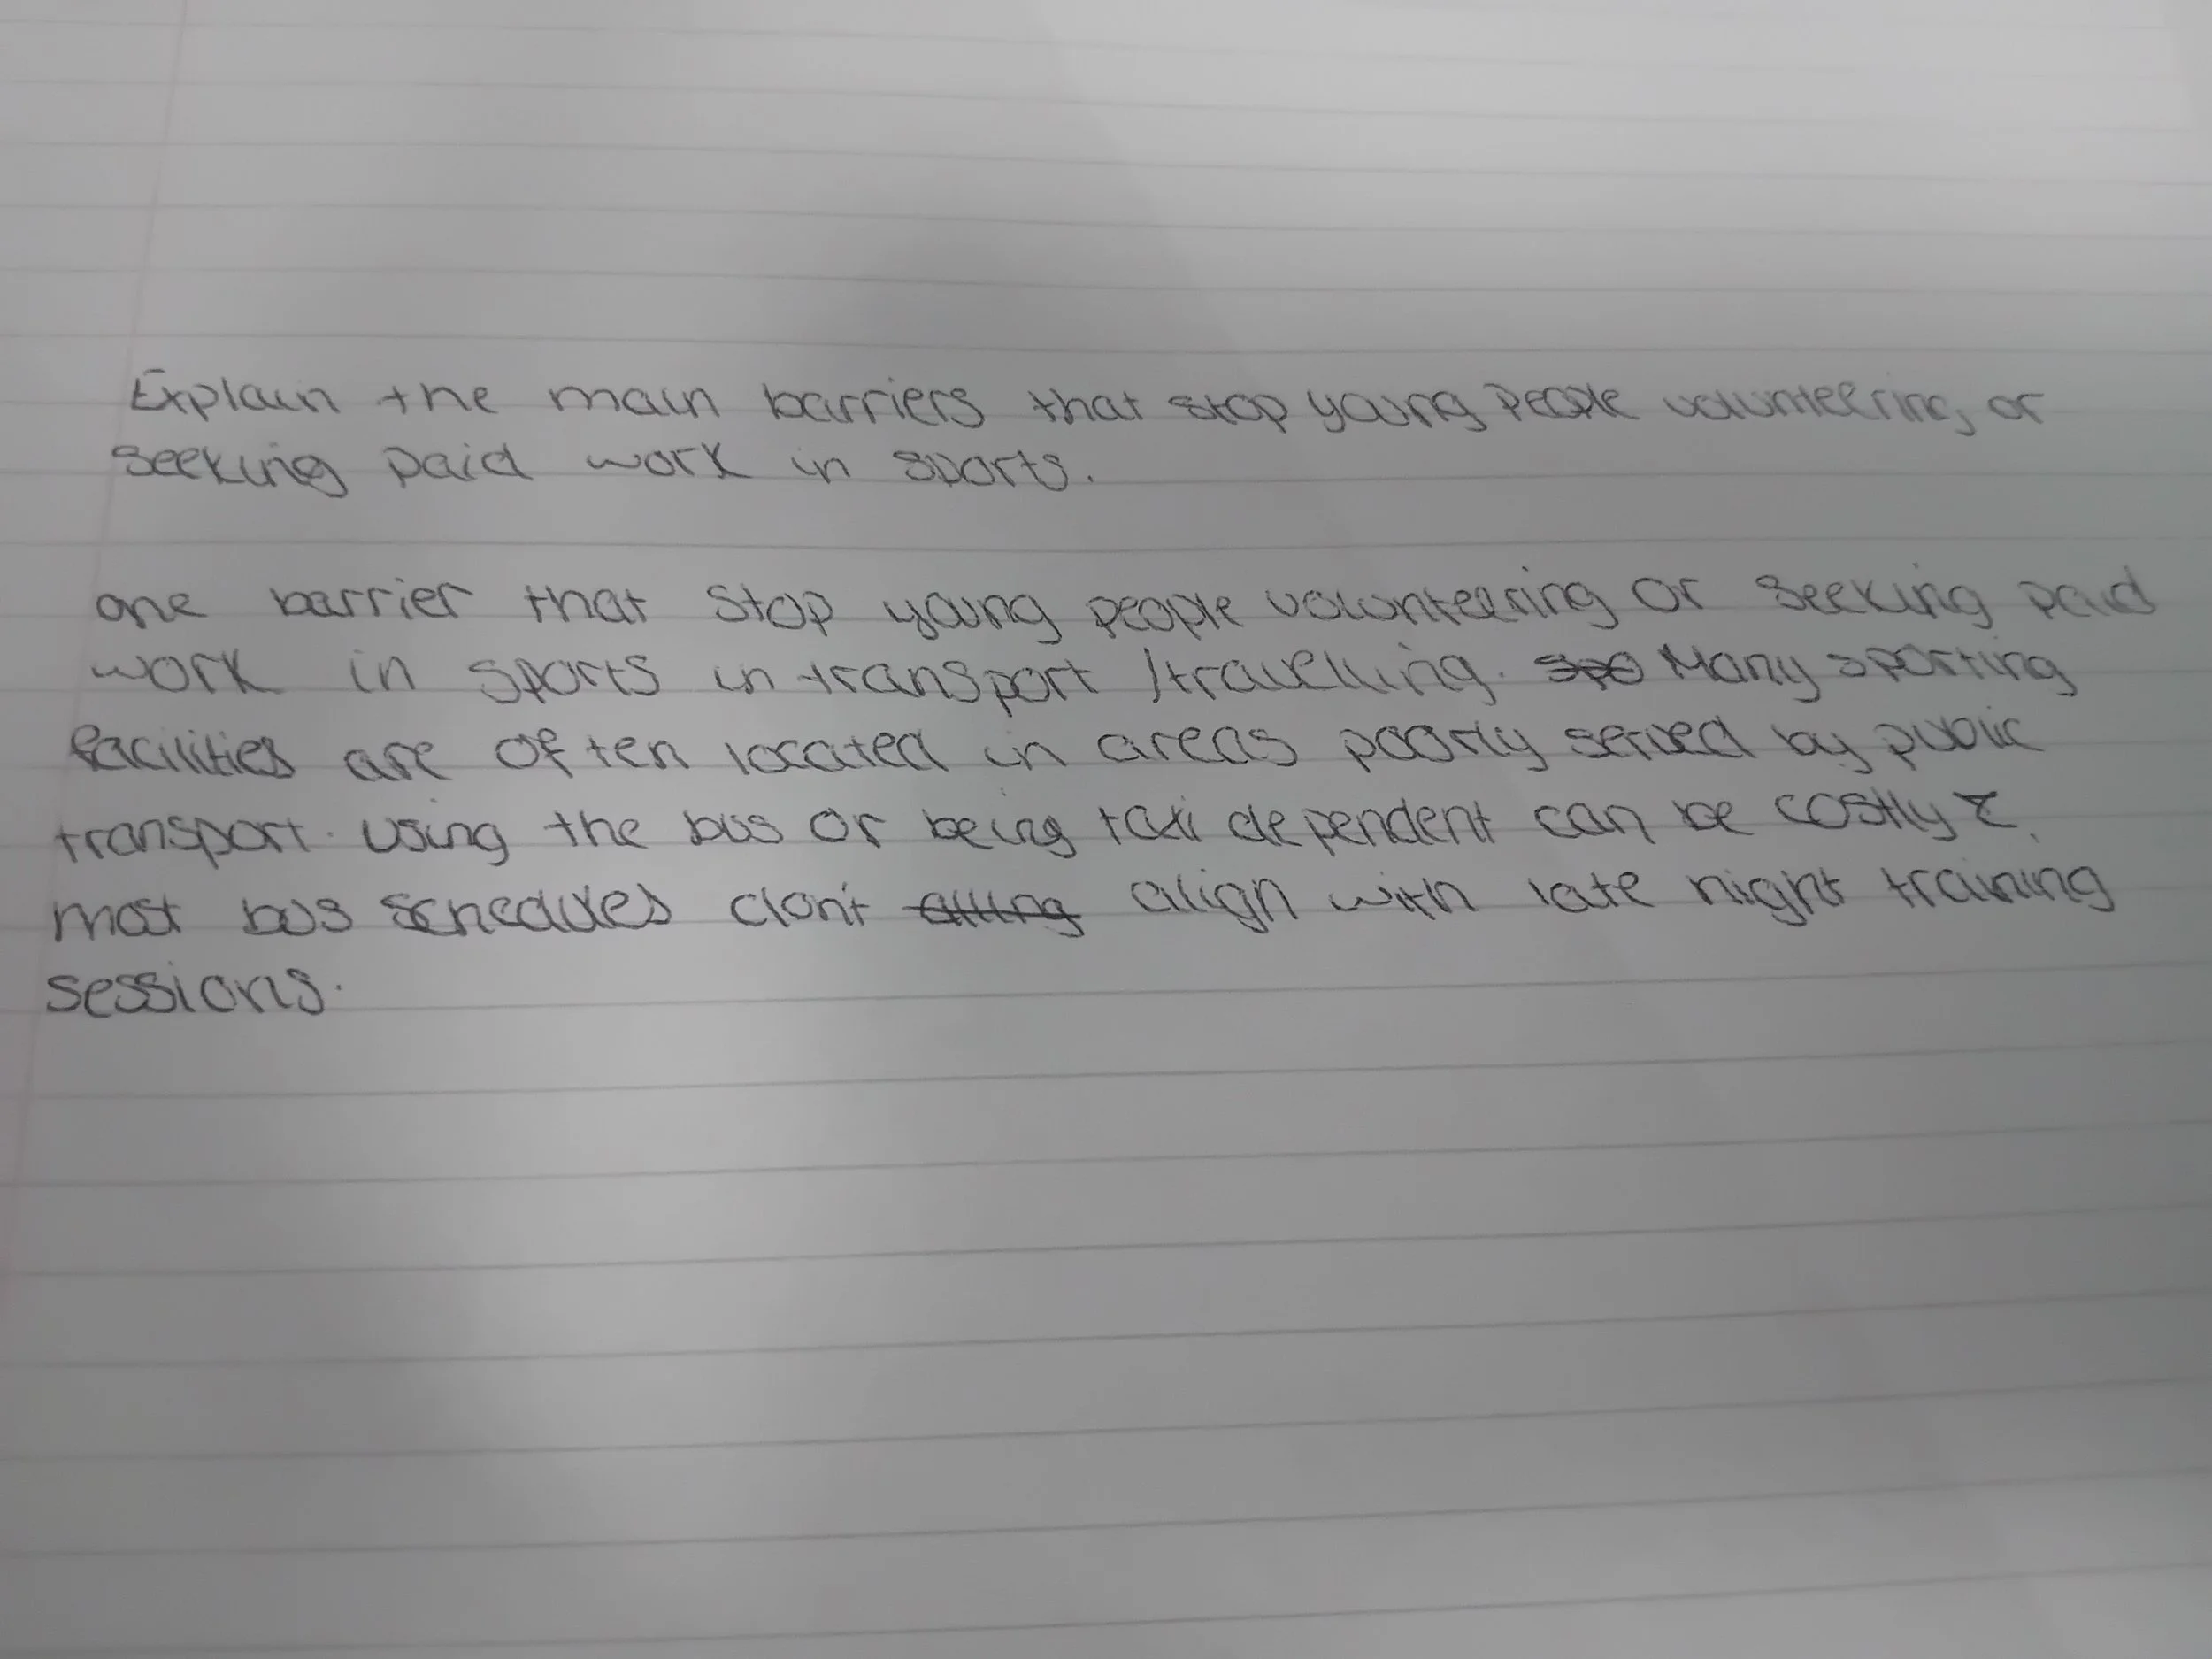 Explain the main barriers that stop young people volunteering or
seeking paid work in sports.
one barrier that stop young people volunteering or seeking paid
work in sports in transport /travelling. Many sporting
facilities are often located in areas poorly served by public
transport. using the bus or being taxi dependent can be costly &
most bus schedules dont align with late night training
sessions.